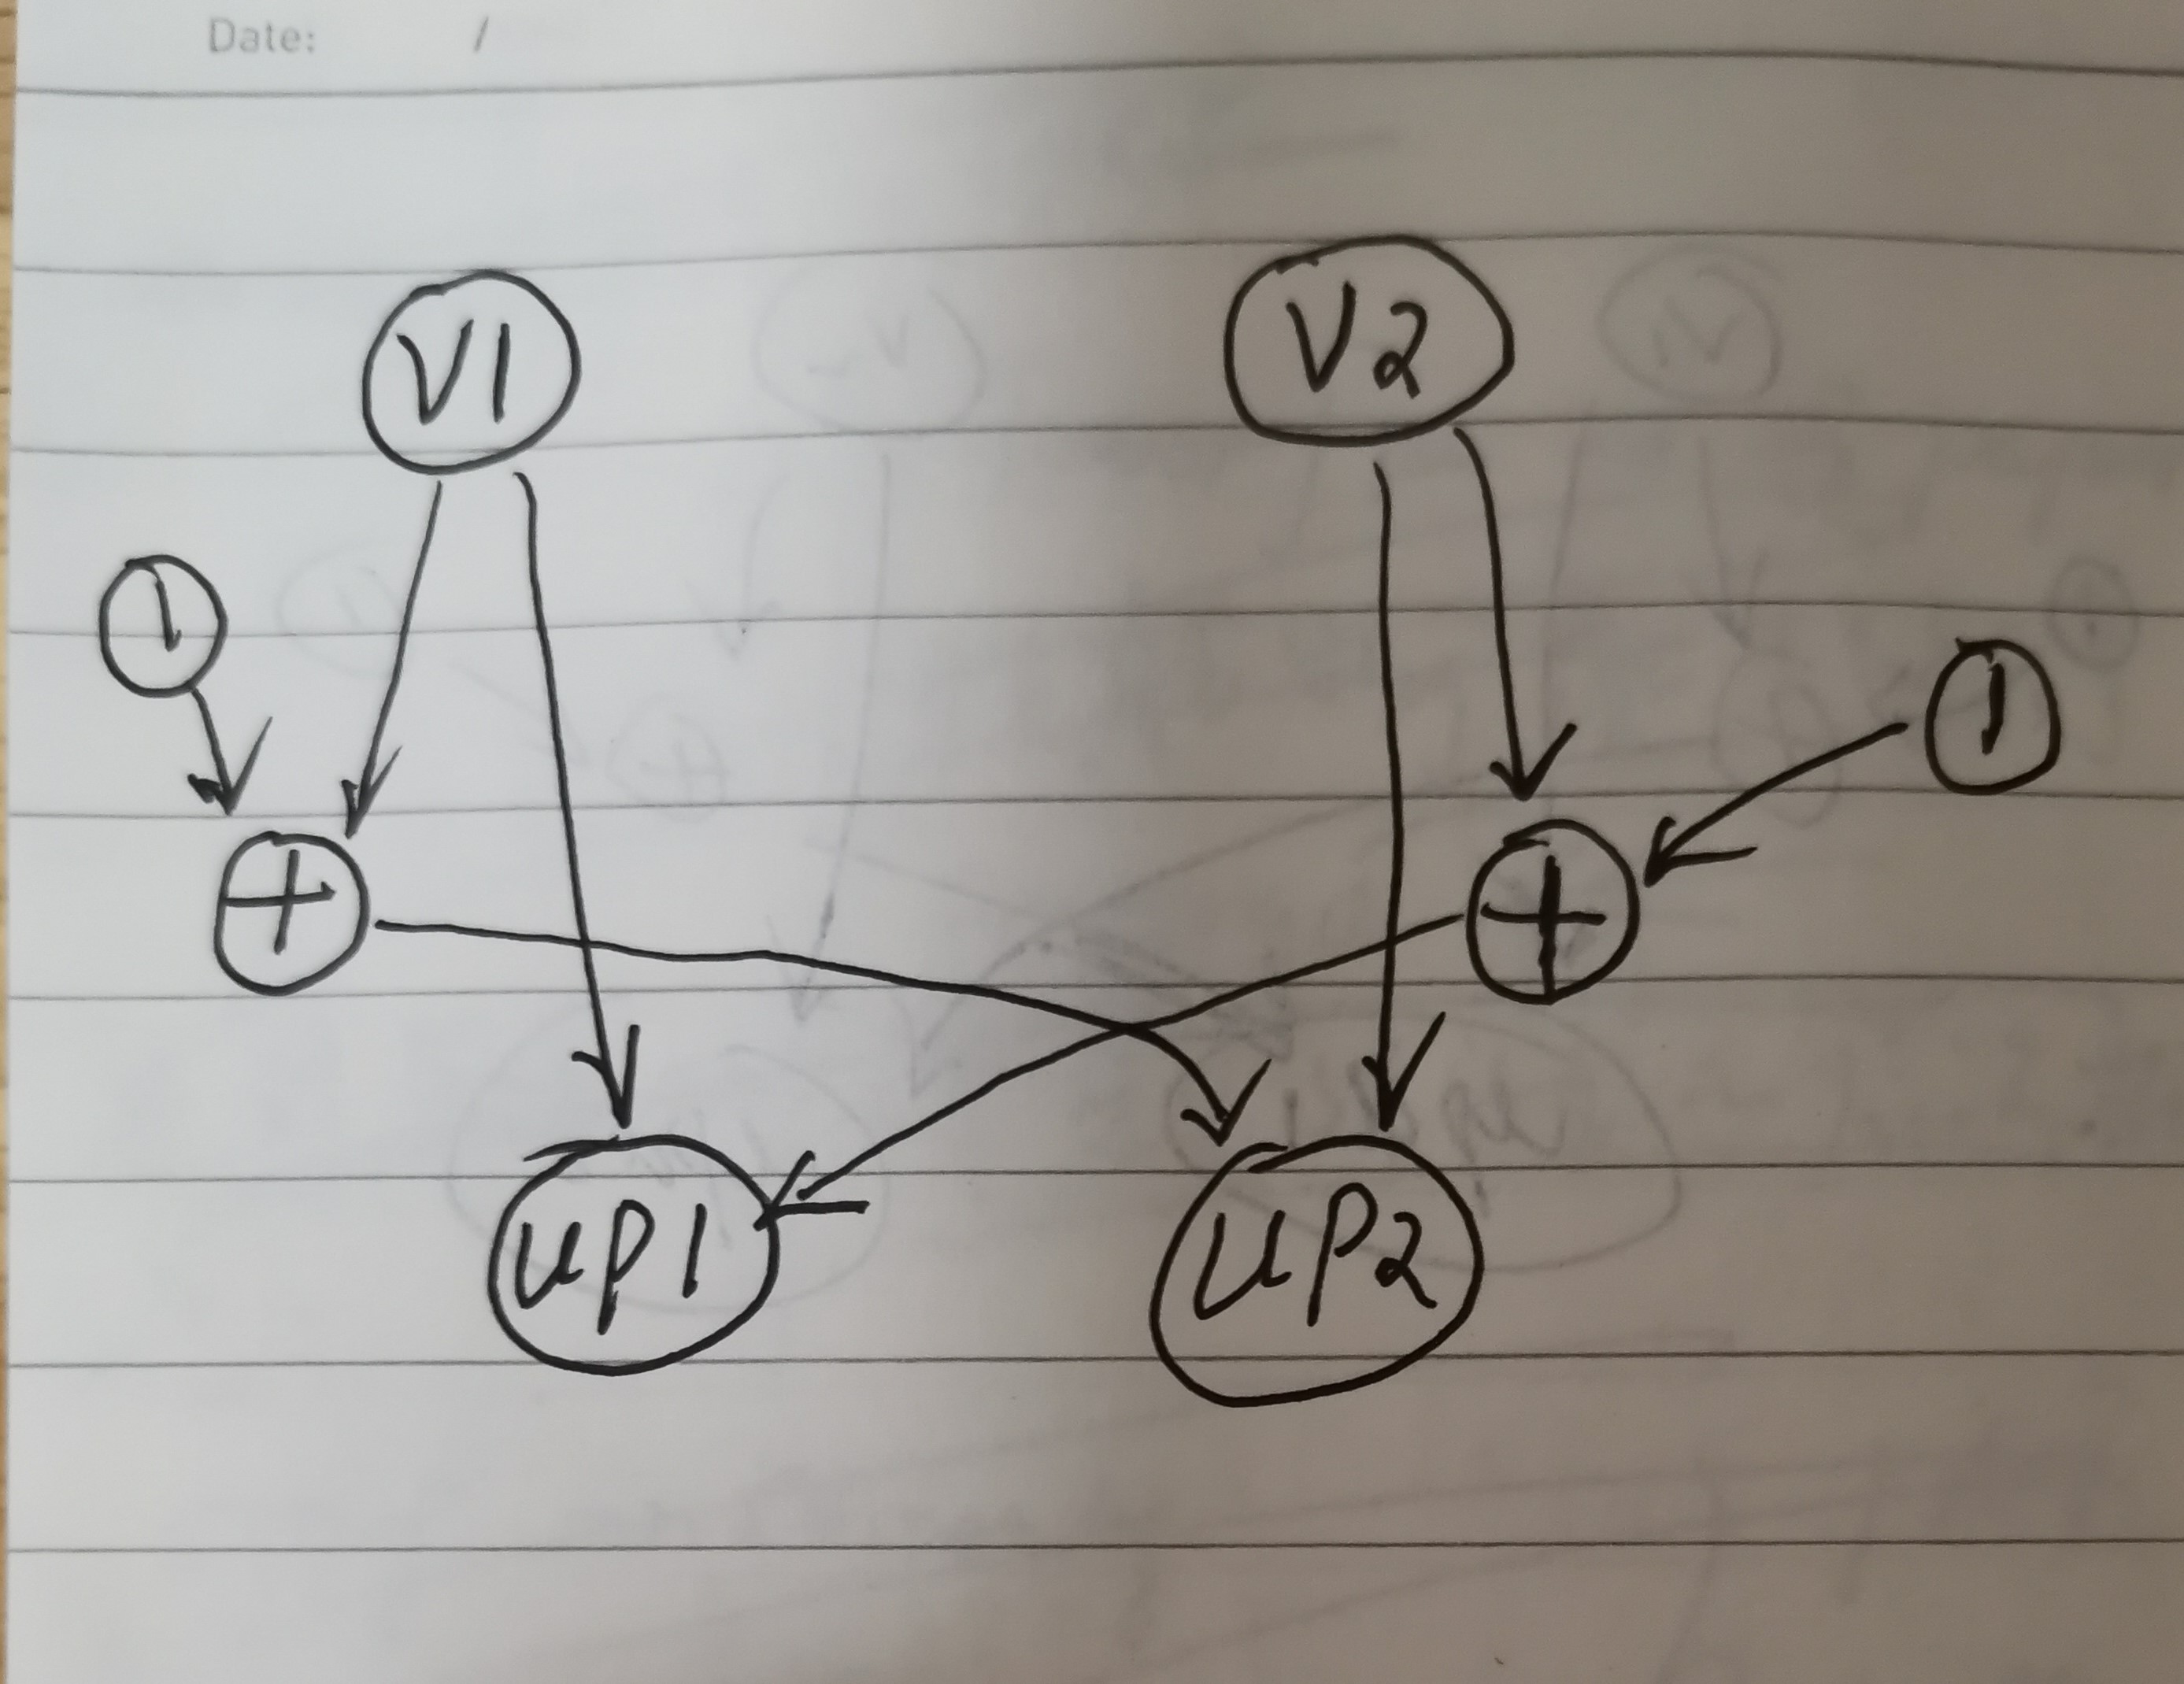 Date: /
V1 V2
1 1
+ +
up1 up2